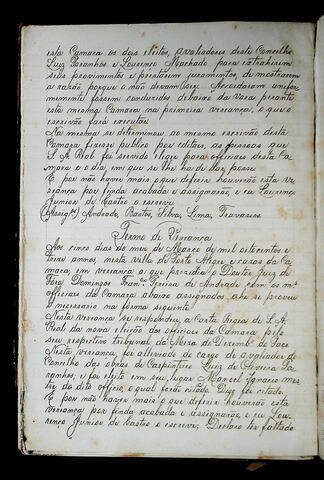 esta Camara os dois eleitos, avaliadores deste Concelho
Luiz Paranhos e Lourenço Machado para extrahirem
seus provimentos e prestarem juramentos, de mostrarem
a razão porque o não devam ser. Accordarão unifor
memente fossem conduzidos debaixo da vara perante
esta mesma Camara na primeira vereança, o que o
escrivão fará executar.
Na mesma se determinou ao mesmo escrivão desta
Camara fizesse publico por editaes, as pessoas que
S. A. Real foi servido eleger para officiaes desta Ca
mara e o dia em que se lhe ha de dar posse.
E por não haver mais que deferir houverão esta ve
reança por finda acabada e assignarão, e eu Lourenço
Junior de Castro o escrevi.
(Assig.ᵒˢ) Andrade, Bastos, Silva, Lima, Travassos
Termo de Vereança
Aos cinco dias do mez de Março de mil oitocentos e
treze annos, nesta villa de Porto Alegre e cazas da Ca
mara, em vereança a que prezidio o Doutor Juiz de
Fóra Domingos Fran.ᶜᵒ Pereira de Andrade com os m.ˢ
officiaes da Camara abaixo assignados ahi se proveu
o necessario na forma seguinte:
Nesta vereança se respondeu a Carta Regia de S. A.
Real da nova eleição dos officiaes da Camara pelo
seu respectivo tribunal da Meza do Dezemb.º do Paço
Nesta vereança foi alteviado do cargo de avaliador do
Concelho das obras de Carpinteiro Luiz de Oliveira Pa
ranhos, e foi eleito em seu lugar Manoel Ignacio mes
tre do dito officio, o qual serão citado. Digo foi citado.
E por não haver mais o que deferir houverão esta
vereança por finda acabada e assignarão, e eu Lou-
renço Junior de Castro o escrevi; Declaro ter faltado